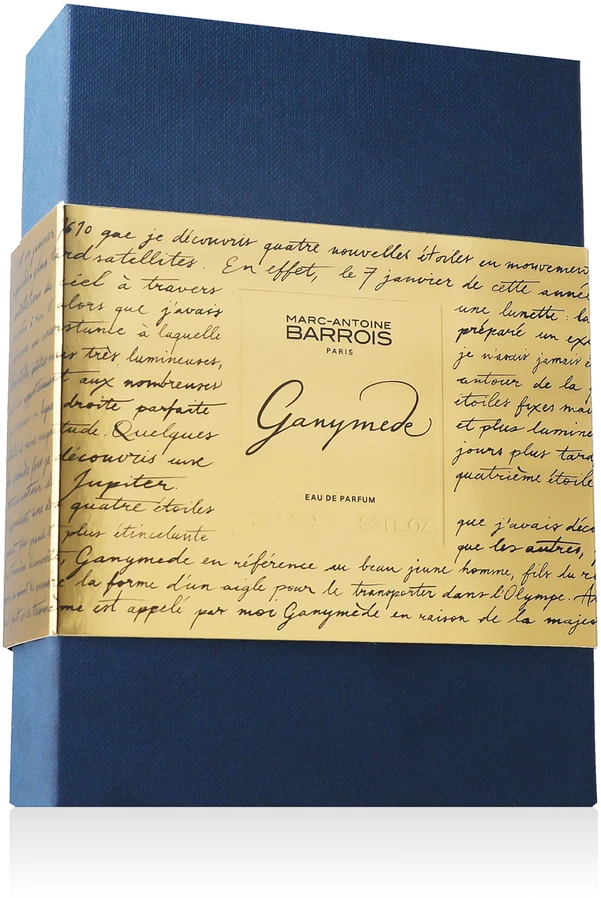 1610 que je découvris quatre nouvelles étoiles en mouvemen
satellites. En effet, le 7 janvier de cette année
ciel à travers
une lunette: la
alors que j'avais
préparé un ex
à laquelle
je n'avais jamais
très lumineuses,
autour de la
et aux nombreuses
étoiles fixes mai
droite parfaite
et plus lumine
Quelques
jours plus tard
découvris une
quatrième étoile
Jupiter.
quatre étoiles
que j'avais déc
plus étincelante
que les autres,
MARC-ANTOINE
BARROIS
PARIS
Ganymede
EAU DE PARFUM
FL.OZ
Ganymede en référence au beau jeune homme, fils du r
la forme d'un aigle pour le transporter dans l'Olympe.
est appelé par moi Ganymède en raison de la majes